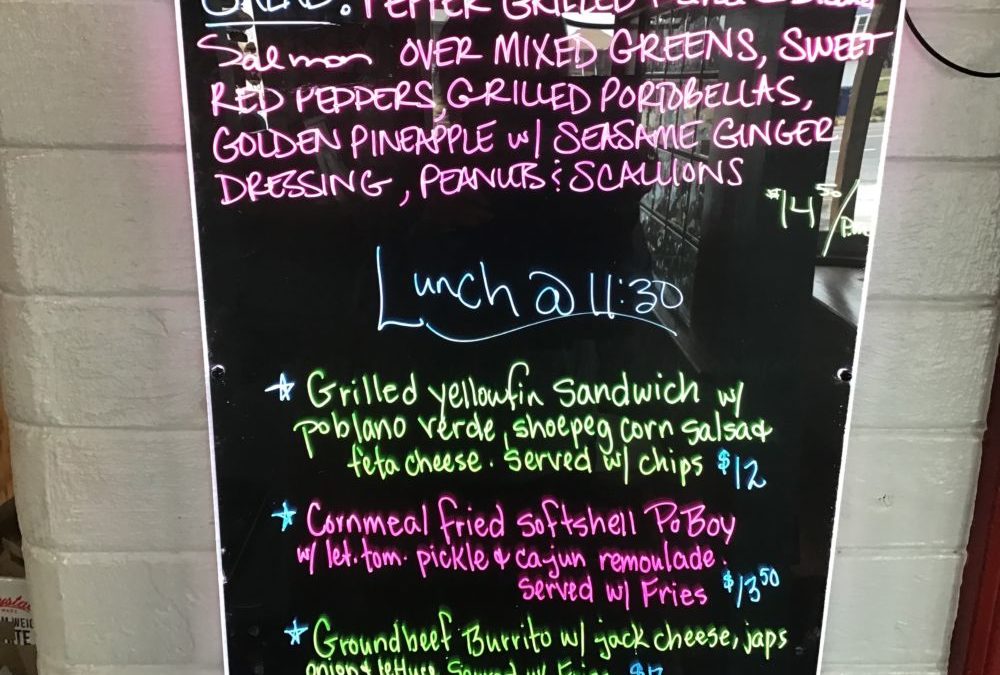 SALAD: PEPPER GRILLED
Salmon OVER MIXED GREENS, SWEET
RED PEPPERS, GRILLED PORTOBELLAS,
GOLDEN PINEAPPLE w/ SEASAME GINGER
DRESSING, PEANUTS & SCALLIONS
$14 50/
Lunch @ 11:30
Grilled yellowfin sandwich w/
poblano verde, shoepeg corn salsa &
feta cheese. Served w/ chips $12
Cornmeal fried softshell PoBoy
w/ let. tom. pickle & cajun remoulade.
Served w/ Fries $13 50
Groundbeef Burrito w/ jack cheese, japs
onion & lettuce Served w/ Fries